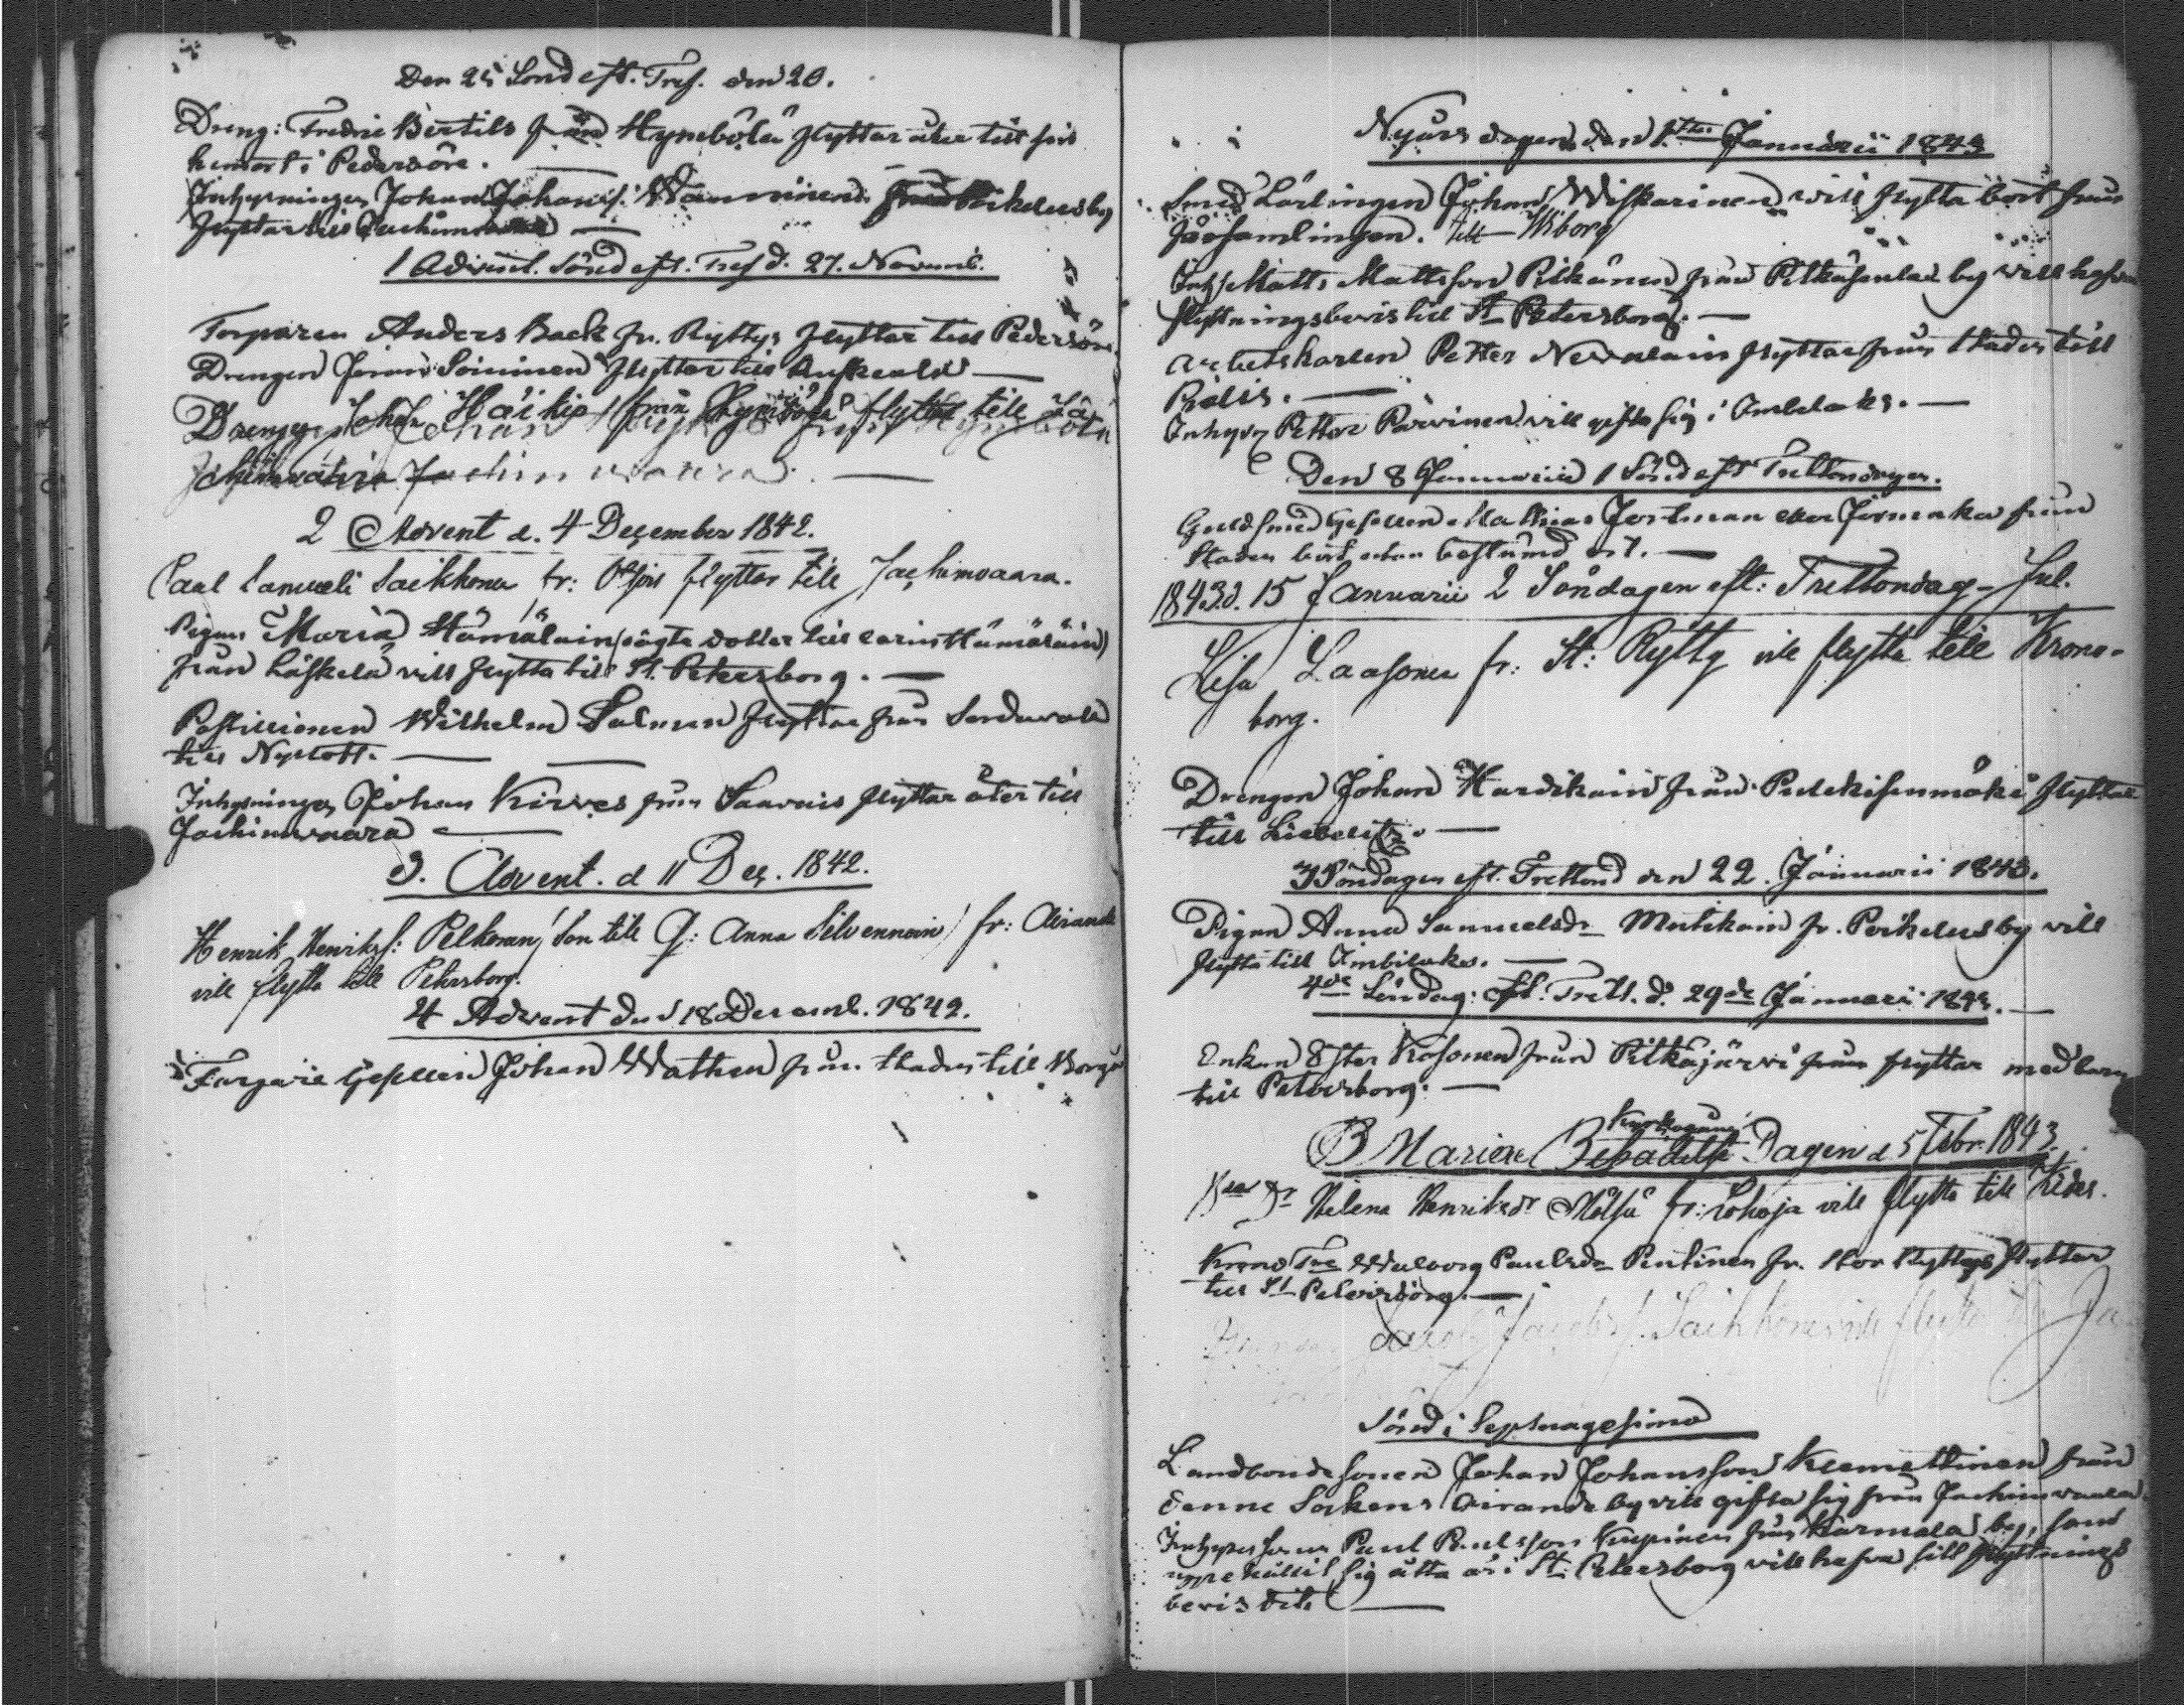 Den 25 Sönd eft. Tref. den 20.
Dreng: Fredric Bertils från Hymböla flyttar åter till sin
hemort i Pedersöre.
Inhysningen Johan Johansf: Wänninen från by
flyttar till Jachimvaara
1 Advent. Sönd eft. Tref d. 27. Novemb.
Torparen Anders Back fr. Ryttys flyttar till Pedersöre
Drengen Johan Soininen flyttar till Ruskeala
Drengen Johan Häikiö från Hymböla flyttar till Ja-
chimvaara
2 Advent d. 4 December 1842.
Paul Samueli Saikkonen fr: flyttar till Jachimvaara.
Pigan Maria Hämäläin (oägta dotter till Carin Hämäläin)
från Läskelä vill flytta till St. Petersborg.
Postillionen Wilhelm Salmen flyttar från Sordavala
till Nyslott.
Inhysningen Johan Kirves från Saavais flyttar åter till
Jachimvaara
3. Advent. d 11 Dec. 1842.
Henrik Henriksf: Pelkonen, son till Q: Anna Silvennoin, fr: Airanda
vill flytta till Petersborg.
4 Advent den 18 Decemb. 1842.
Färgare Gesellen Johan Wathen från staden till Borgå
Nyårs dagen den 1sta Januarii 1843
Smed Lärlingen Johan Wiskarinen vill flytta bort från
församlingen. till Wiborg
Inhys Matts Mattsson Pitkänen från by vill hafva
flyttningsbevis till St Petersborg.
Arbetskarlen Petter Nevalain flyttar från staden till
Inhysn Petter Parvinen vill gifta sig i Imbilaks.
Den 8 Januarii 1 Sönd eft Trettondagen.
Guldsmed Gesellen Mathias Forsman eller Jormaka från
staden bort utan bestämd ort.
1843. d. 15 Januarii 2 Söndagen eft: Trettondag-Jul.
Lisa Laasonen fr: St: Rytty vill flytta till Krono-
borg.
Drengen Johan Hardikain från flyttar
till Liebelitz.
3 Söndagen eft. Trettond den 22. Januarii 1843.
Pigan Anna Samuelsdr Mutikain fr. by vill
flytta till Imbilaks.
4de Söndag: eft. Trett. d. 29de Januari 1843.
Enkan Ester Kosonen från Pitkäjärvi från flyttar med barn
till Petersborg.
Kyrkogång
B Mariæ Bebådelse Dagen d 5 Febr. 1843.
Helena Henriksdr fr: Lohoja vill flytta till Kides.
Krono Walborg Paulsdr Pentinen fr. Stor Ryttys flyttar
till St Petersborg.
Jacob Jacobsf. Saikkonen vill flytta till Ja
Sönd: Septuagesima
Landbondesonen Johan Johansson Klemettinen från
denne Sockens Airanda by vill gifta sig från Jachimvaara.
Paul Paulsson från Karmala by, som
uppehållit sig åtta år i St. Petersborg vill hafva sitt flyttnings
bevis dit